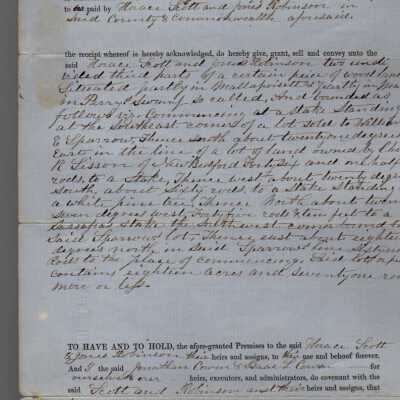 to us paid by Horace Scott and Jones Robinson in
said County & Commonwealth aforesaid.
the receipt whereof is hereby acknowledged, do hereby give, grant, sell and convey unto the
said Horace Scott and Jones Robinson two undi
vided third parts of a certain piece of woodland
Situated partly in Mattapoisett & partly in
in Perry Swamp so called, And bounded as
follows viz. Commencing at a Stake Standing
at the Southeast corner of a lot sold to William
E Sparrow, Thence South about twenty one degrees
East in the line of a lot of land owned by
R Sisson of New Bedford Forty Six and one half
rods to a Stake, Thence west about twenty degrees
South about Sixty rods to a Stake Standing
a white pine tree, Thence North about twen
Seven degrees west, Forty five rods & ten feet to a
Sassafras Stake the Southwest corner bound to
Said Sparrow's lot, Thence east about eighteen
degrees north in Said Sparrow's line
rods to the place of commencing. Said lot
contains eighteen acres and Seventy one rods
more or less.
TO HAVE AND TO HOLD, the afore-granted Premises to the said Horace Scott
& Jones Robinson their heirs and assigns, to their use and behoof forever.
And I the said Jonathan Cowen & Isaac L Cowen for
ourselves our heirs, executors, and administrators, do covenant with the
said Scott and Robinson and their heirs and assigns, that